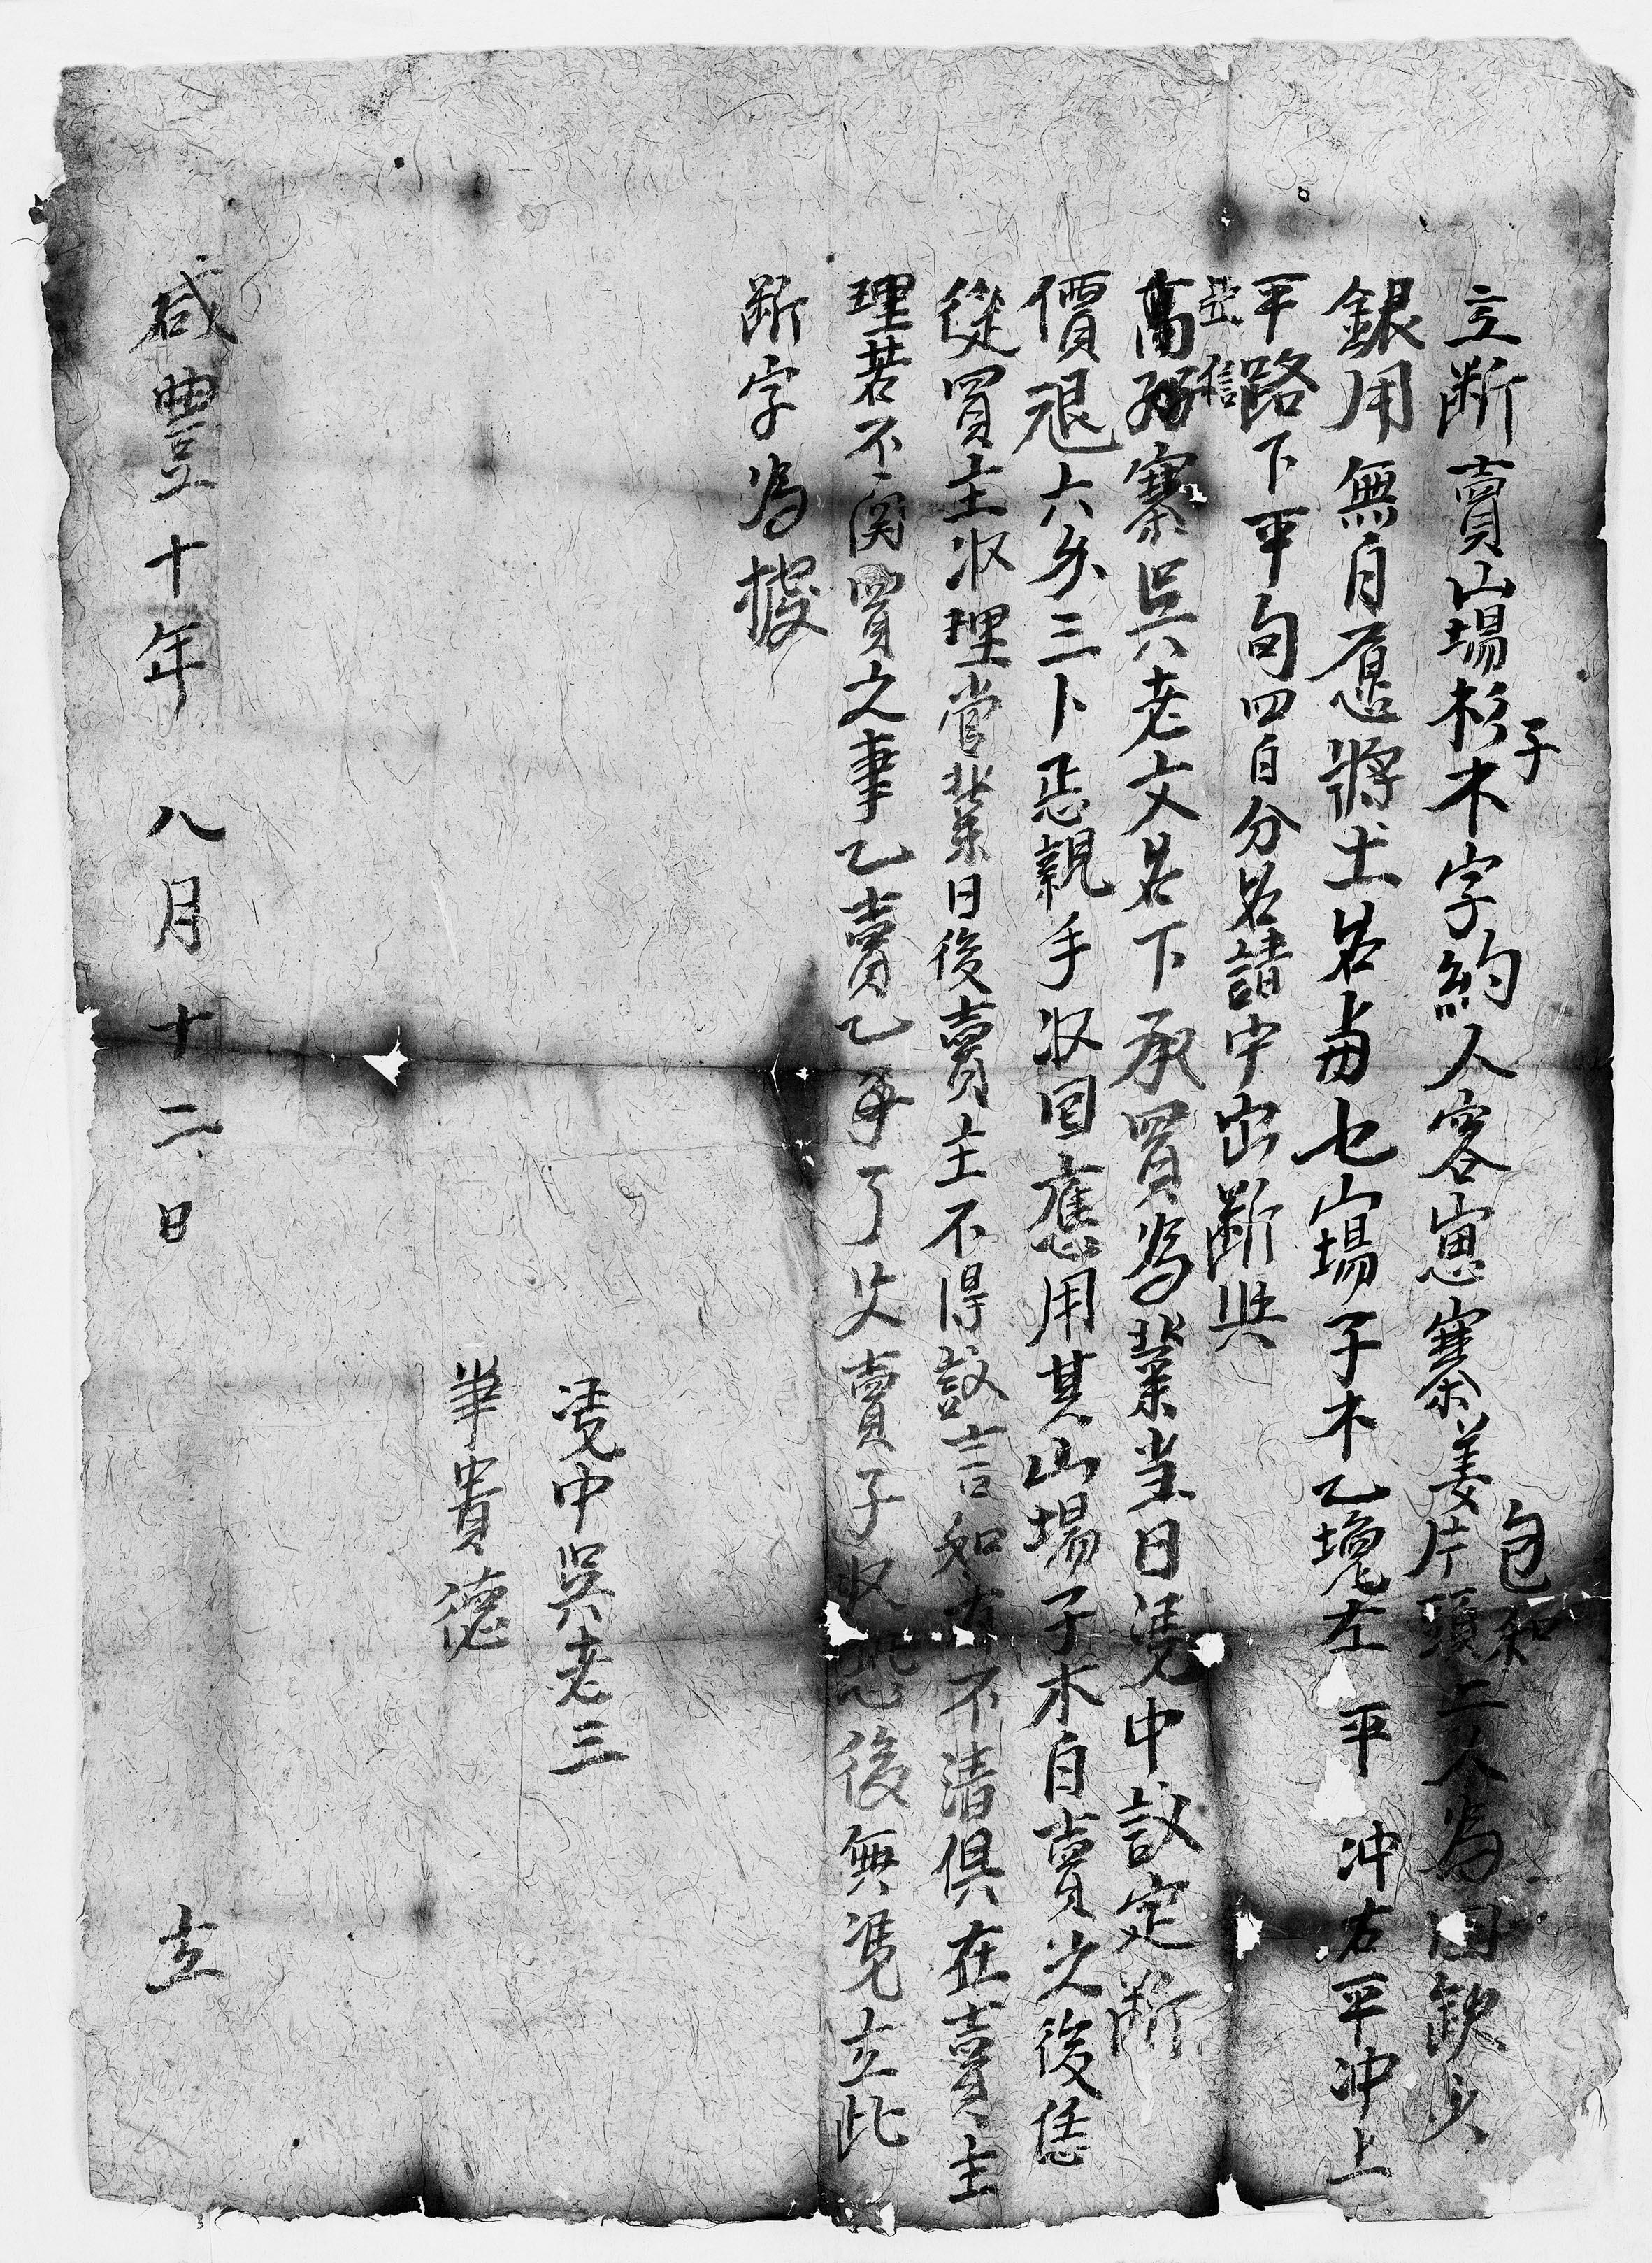 立断賣山場杉子木字約人客崽寨姜片頭包和二人為因缺少
銀用無自愿將土名七山場子木乙塊左平冲右平冲上
平路下平田四自分名請中出断與
高寨吳老文名下承買為業當日憑中議定断
價艮六分三卜恁親手収回應用其山場子木自賣之後恁
從買主収理管業日後賣主不得議言如有不清俱在賣主
理若不関買之事乙賣乙了父賣子収恐後無憑立此
断字為據
憑中吳老三
筆貴德
咸豐十年八月十二日立